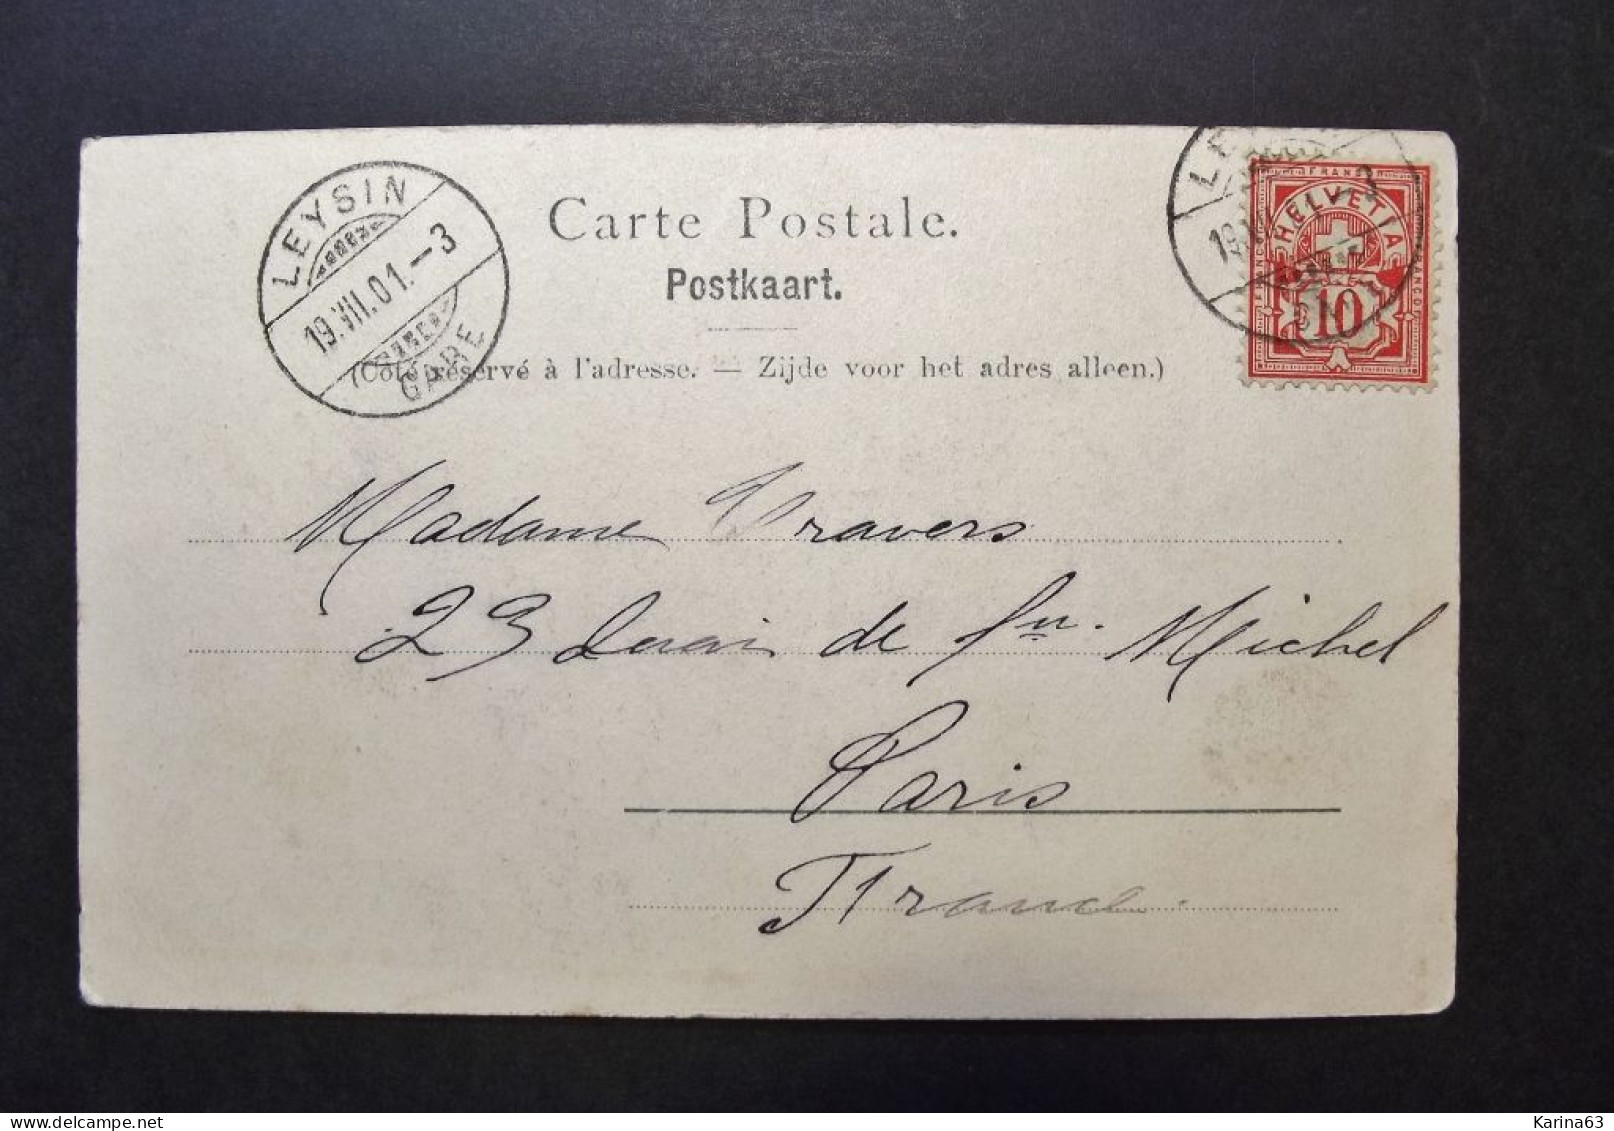 LEYSIN
19.VII.01.–3
GARE
Carte Postale.
Postkaart.
(Côté réservé à l'adresse. — Zijde voor het adres alleen.)
FRANCO
HELVETIA
FRANCO
FRANCO
10
Madame Travers
23 Quai de Michel
Paris
France.
Karina63